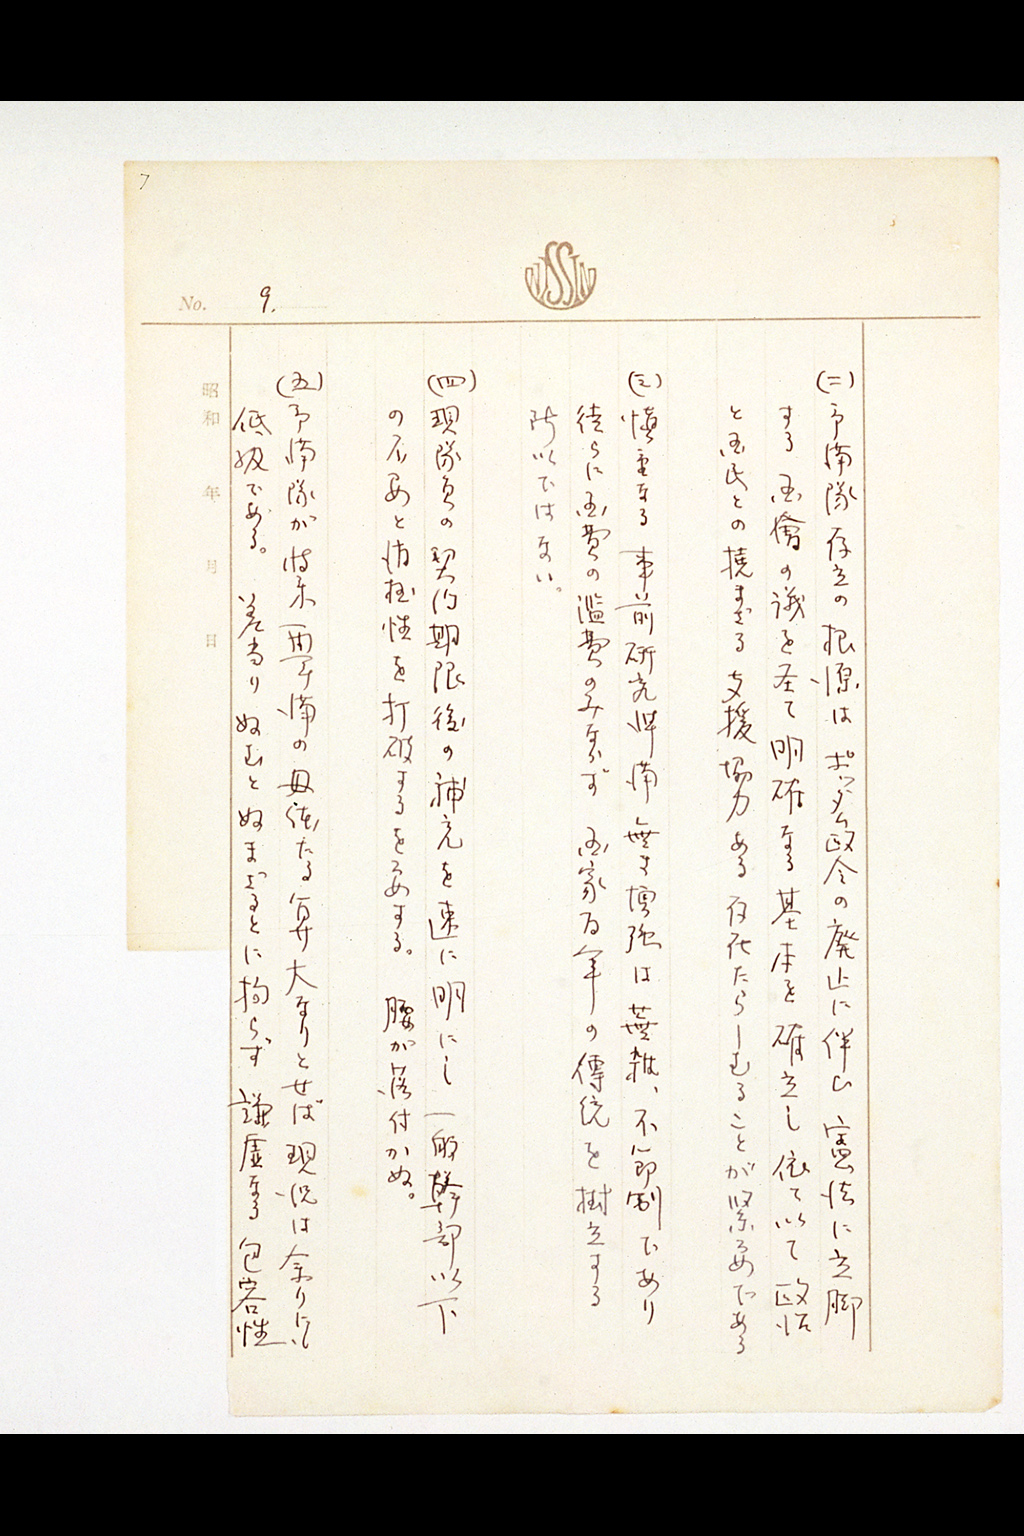 7
NISSIN
No. 9.
(二)予備隊存立の根源はポツダム政令の廃止に伴い憲法に立脚
する国会の議を経て明確なる基本を確立し依て以て政治
と国民との撓まざる支援協力ある存在たらしむることが緊要である
(三)慎重なる事前研究準備無き増強は蕪雑、不節制であり
徒らに国費の濫費のみならず国家百年の傳統を樹立する
所以ではない。
(四)現隊員の契約期限後の補充を速に明にし一般幹部以下
の不安と 性を打破するを要する。 腰が落付かぬ。
(五)予備隊が将来再軍備の母体たる算大なりとせば現況は余りにも
低級である。 差当り好むと好まざるとに拘らず謙虚なる包容性
昭和 年 月 日